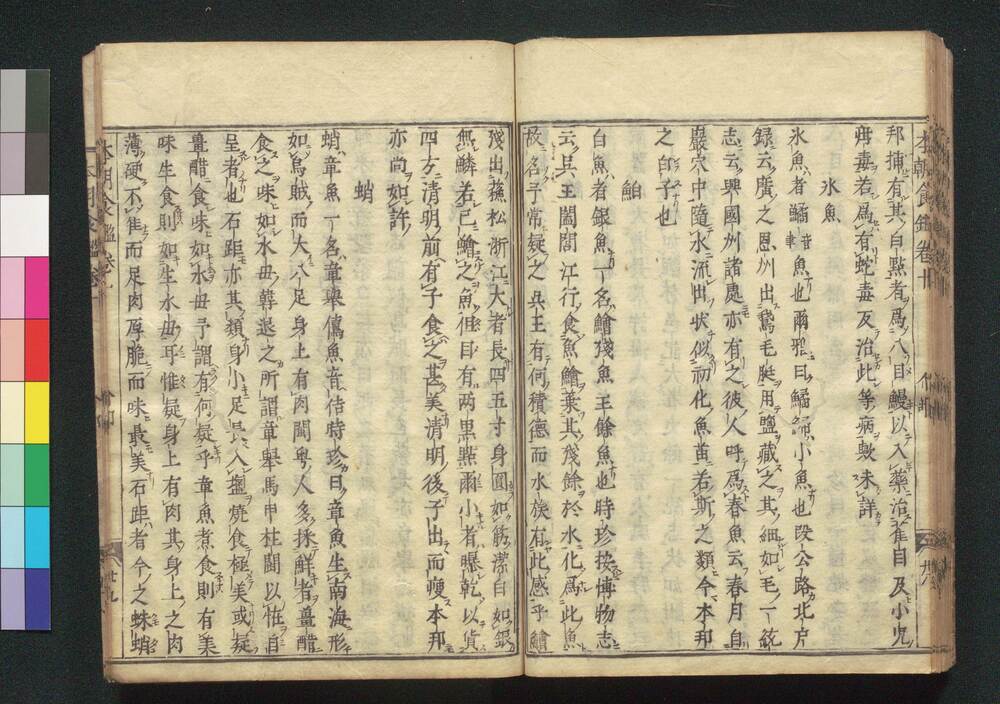 邦捕有其白點者爲八目鰻以入藥治雀目及小兒
疳毒若爲有蛇毒及治此等病歟未詳
氷魚
氷魚者鱊音聿魚也爾雅曰鱊鮬小魚也段公路北戸
録云廣之恩州出鵞毛脡用鹽藏之其細如毛一統
志云興國州諸處亦有之彼人呼爲春魚云春月自
巖穴中隨水流出狀似初化魚苗若斯之類今本邦
之白子也
鮊
白魚者銀魚一名鱠殘魚王餘魚也時珍按博物志
云呉王闔閭江行食魚鱠棄其殘餘於水化爲此魚
故名予常疑之呉王有何積德而水族有此感乎鱠
殘出蘇松浙江大者長四五寸身圓如筯潔白如銀
無鱗若已鱠之魚但目有兩黒點爾小者曝乾以貨
四方清明前有子食之甚美清明後子出而瘦本邦
亦尚如許
蛸
蛸章魚一名章舉僐魚音佶時珍曰章魚生南海形
如烏賊而大八足身上有肉閩粤人多採鮮者薑醋
食之味如水母韓退之所謂章舉馬甲柱鬪以怪自
呈者也石距亦其類身小足長入鹽燒食極美或疑
薑醋食味如水母予謂有何疑乎章魚煮食則有美
味生食則如生水母耳惟疑身上有肉其身上之肉
薄硬不佳而足肉厚脆而味最美石距者今之蛛蛸
本朝食鑑卷十
廿九